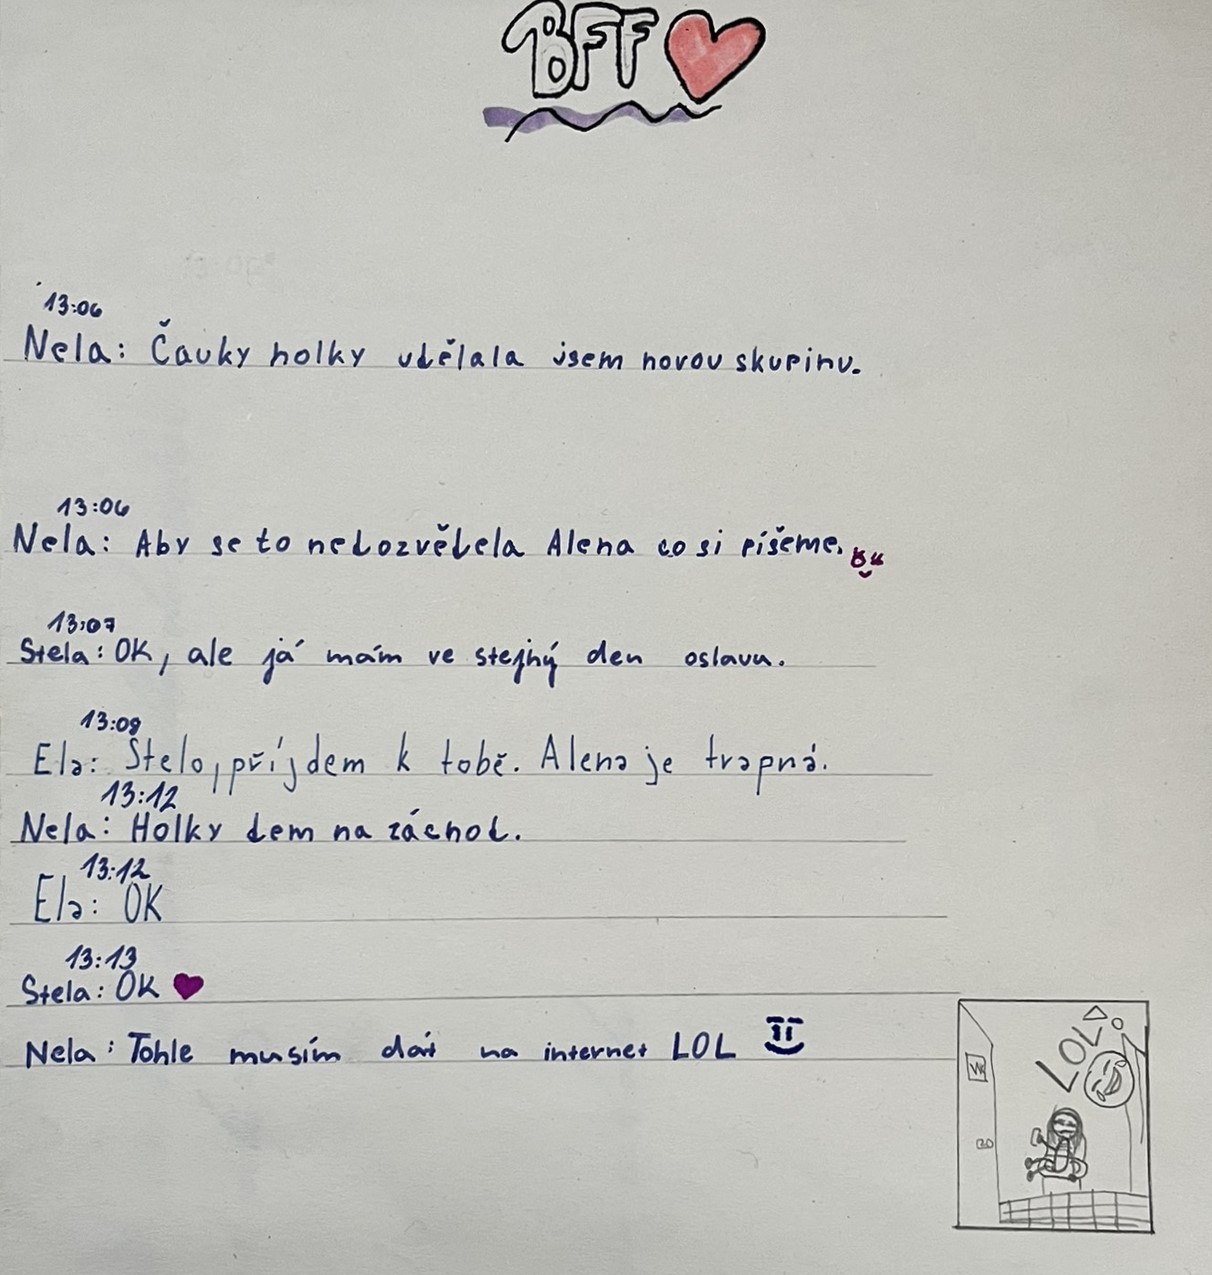 BFF
13:06
Nela: Čauky holky udělala jsem novou skupinu.
13:06
Nela: Aby se to nedozvěděla Alena co si píšeme.
13:07
Stela: OK, ale já mám ve stejný den oslavu.
13:09
Ela: Stelo, příjdem k tobě. Alena je trapná.
13:12
Nela: Holky dem na záchod.
13:12
Ela: OK
13:13
Stela: OK
Nela: Tohle musím dát na internet LOL
LOL